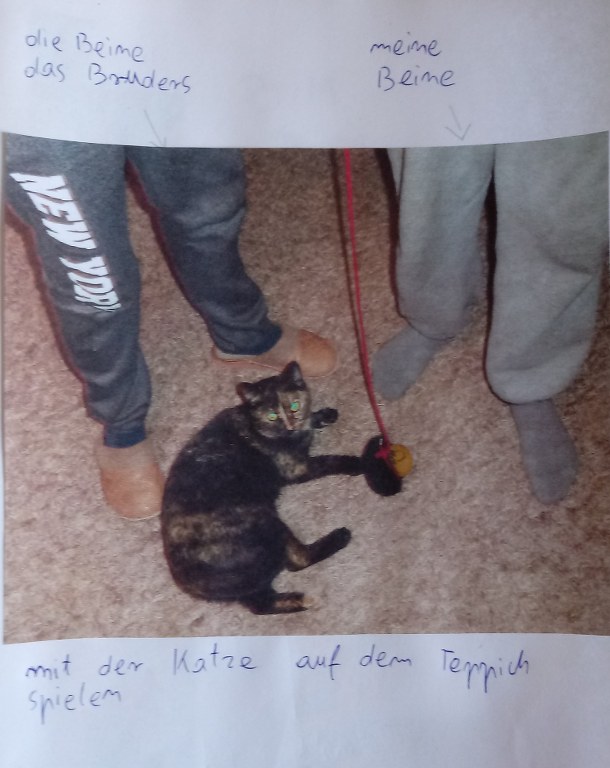 die Beine
das Bruders
meine
Beine
NEW YORK
mit der Katze auf dem Teppich
spielen